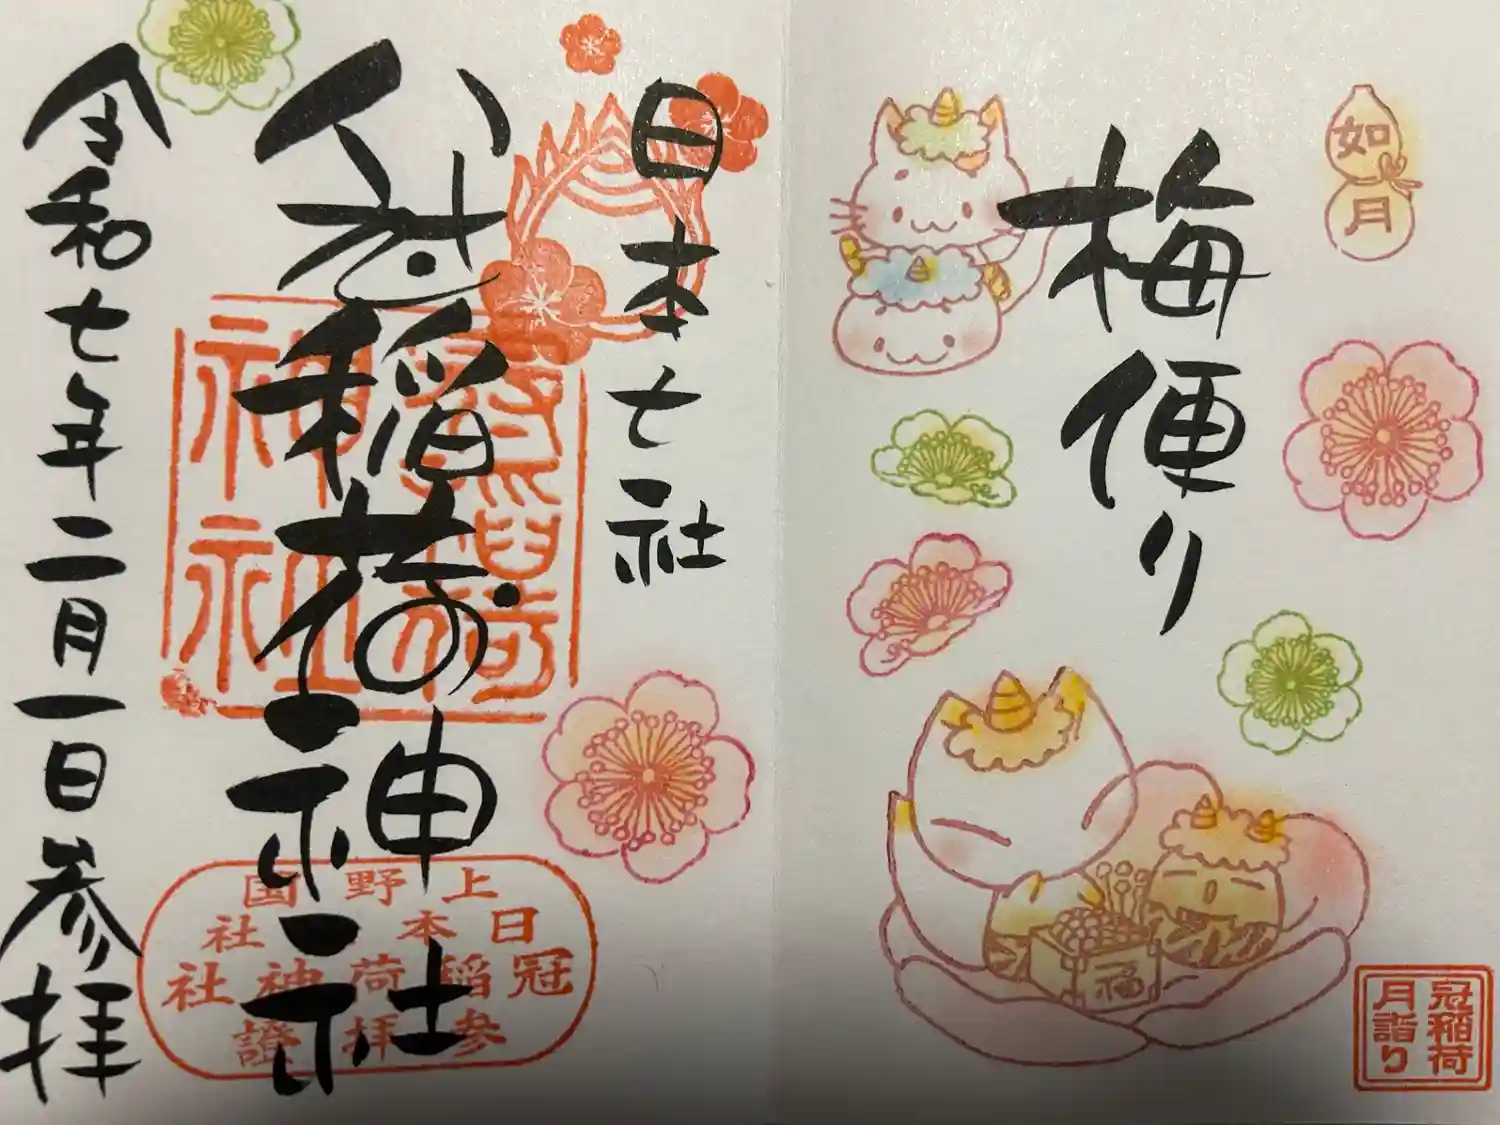 如月
梅便り
冠稲荷
月詣り
日本七社
冠稲荷神社
上野国
日本七社
冠稲荷神社
参拝證
令和七年二月一日参拝
福